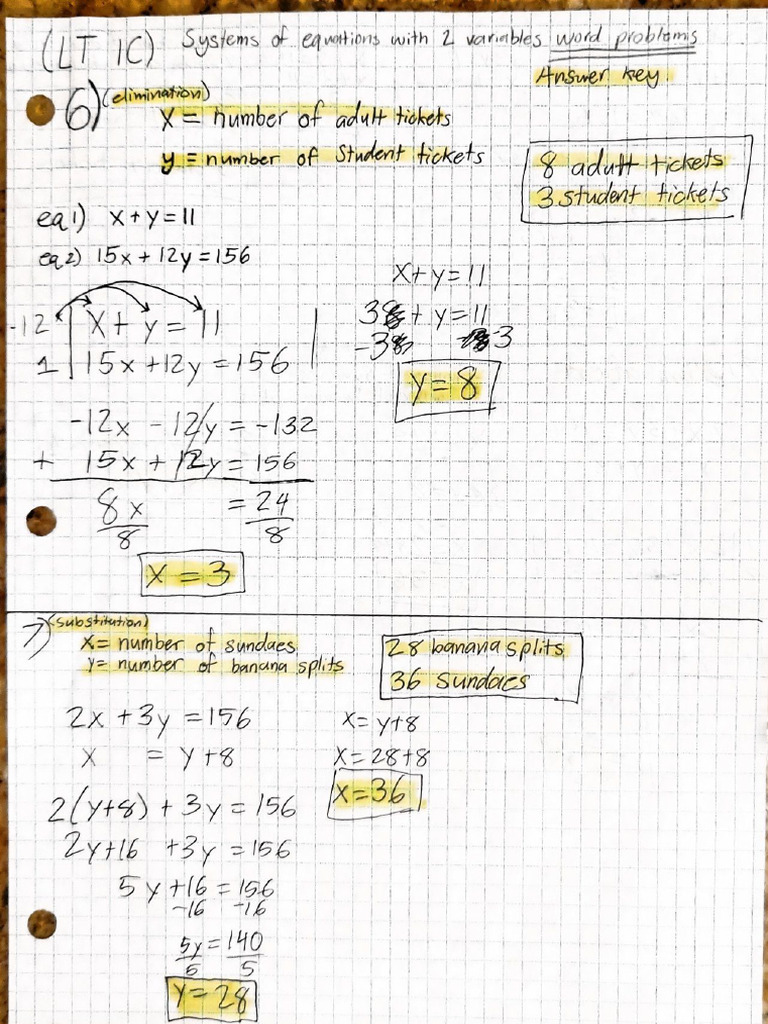 (LT 1C) Systems of equations with 2 variables word problems
Answer key
6) (elimination)
x = number of adult tickets
y = number of Student tickets
8 adult tickets
3 student tickets
eq 1) x + y = 11
eq 2) 15x + 12y = 156
-12 | x + y = 11 |
1 | 15x + 12y = 156 |
-12x - 12y = -132
+ 15x + 12y = 156
8x = 24
8 8
x = 3
x + y = 11
3 + y = 11
-3 -3
y = 8
7) (substitution)
x = number of sundaes
y = number of banana splits
28 banana splits
36 sundaes
2x + 3y = 156
x = y + 8
2(y+8) + 3y = 156
2y+16 + 3y = 156
5y + 16 = 156
-16 -16
5y = 140
5 5
y = 28
x = y+8
x = 28+8
x = 36